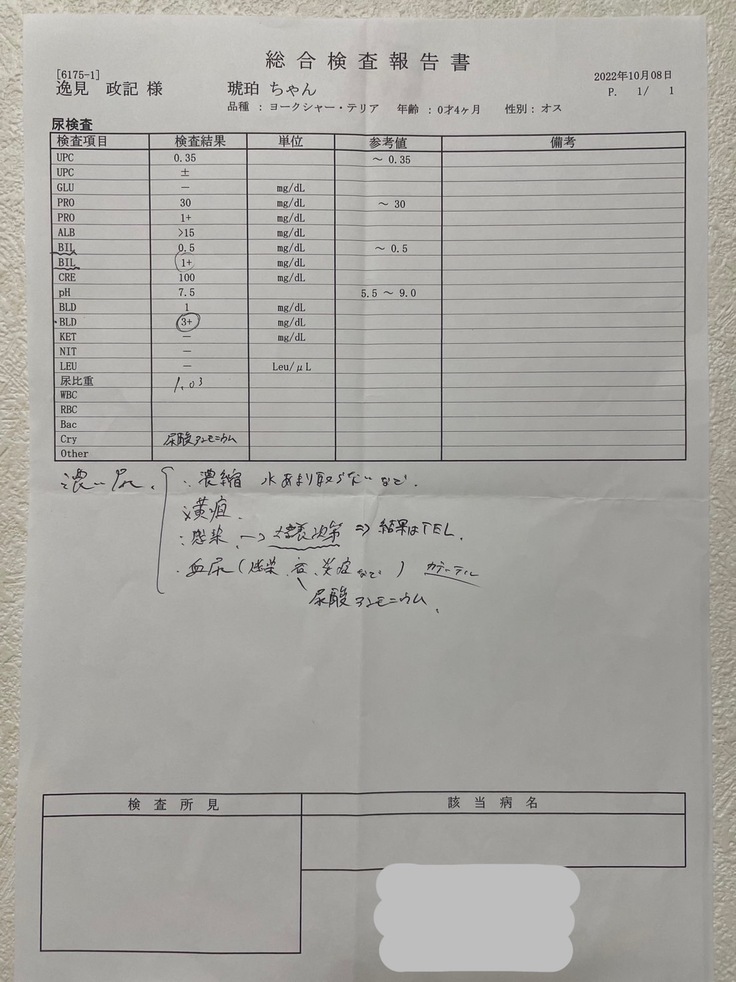 総合検査報告書
[6175-1]
2022年10月08日
逸見 政記 様 琥珀 ちゃん
P. 1/ 1
品種 : ヨークシャー・テリア 年齢 : 0才4ヶ月 性別: オス
尿検査
検査項目 検査結果 単位 参考値 備考
UPC 0.35 ～ 0.35
UPC ±
GLU － mg/dL
PRO 30 mg/dL ～ 30
PRO 1+ mg/dL
ALB >15 mg/dL
BIL 0.5 mg/dL ～ 0.5
BIL 1+ mg/dL
CRE 100 mg/dL
pH 7.5 5.5 ～ 9.0
BLD 1 mg/dL
BLD 3+ mg/dL
KET － mg/dL
NIT －
LEU － Leu/μL
尿比重 1.03
WBC
RBC
Bac
Cry 尿酸アンモニウム
Other
濃い尿、 濃縮 水あまり取らないなど.
黄疸
感染 → 培養 ⇒ 結果はTEL.
血尿 (感染、石、炎症など) カテーテル
尿酸アンモニウム
検査所見 該当病名